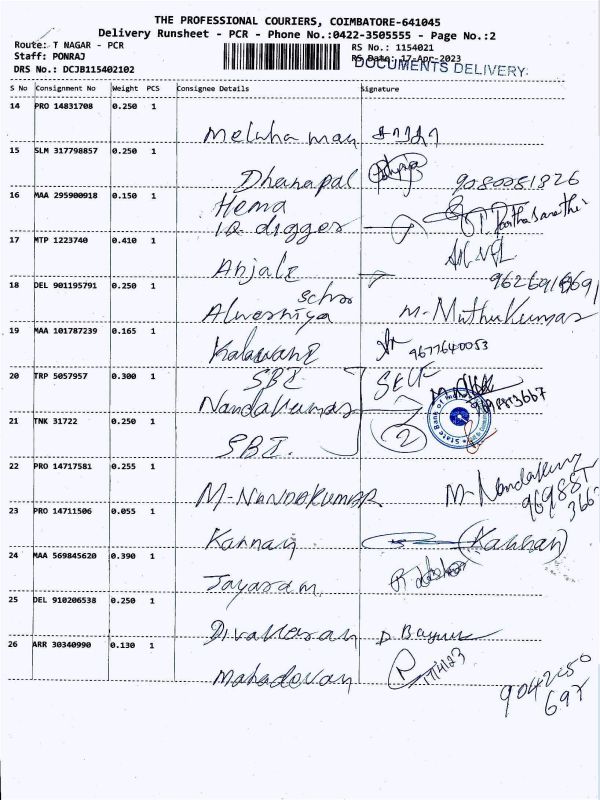 THE PROFESSIONAL COURIERS, COIMBATORE-641045
Delivery Runsheet - PCR - Phone No.:0422-3505555 - Page No.:2
Route: T NAGAR - PCR
RS No.: 1154021
Staff: PONRAJ
RS Date: 17-Apr-2023
DOCUMENTS DELIVERY
DRS No.: DCJB115402102
S No Consignment No Weight PCS Consignee Details Signature
14 PRO 14831708 0.250 1
15 SLM 317798857 0.250 1
Dhanapal 9080081826
16 MAA 295900918 0.150 1
Hema
I.Q digger
17 MTP 1223740 0.410 1
Anjali
18 DEL 901195791 0.250 1
M-Muthukumar
19 MAA 101787239 0.165 1
Kalavani 9677640053
20 TRP 5057957 0.300 1
SBI SELF
Nandakumar
State Bank of India
21 TNK 31722 0.250 1
2
SBI.
22 PRO 14717581 0.255 1
M-NANDAKUMAR M-Nandakumar
23 PRO 14711506 0.055 1
Kannan (Kannan)
24 MAA 569845620 0.390 1
Jayaram
25 DEL 910206538 0.250 1
Divakaran
26 ARR 30340990 0.130 1
Mahadevan 17/4/23